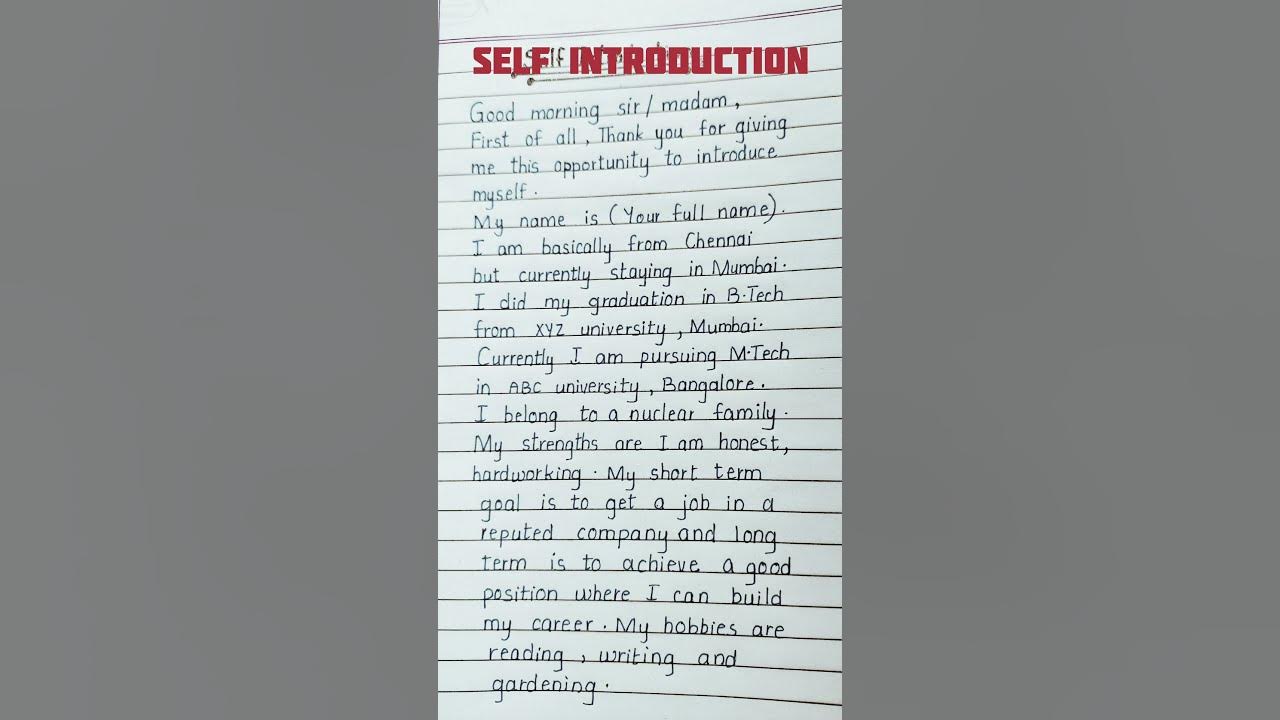 SELF INTRODUCTION
Self
Good morning sir / madam,
First of all, Thank you for giving
me this opportunity to introduce
myself.
My name is (Your full name).
I am basically from Chennai
but currently staying in Mumbai.
I did my graduation in B.Tech
from XYZ university, Mumbai.
Currently I am pursuing M.Tech
in ABC university, Bangalore.
I belong to a nuclear family.
My strengths are I am honest,
hardworking. My short term
goal is to get a job in a
reputed company and long
term is to achieve a good
position where I can build
my career. My hobbies are
reading, writing and
gardening.